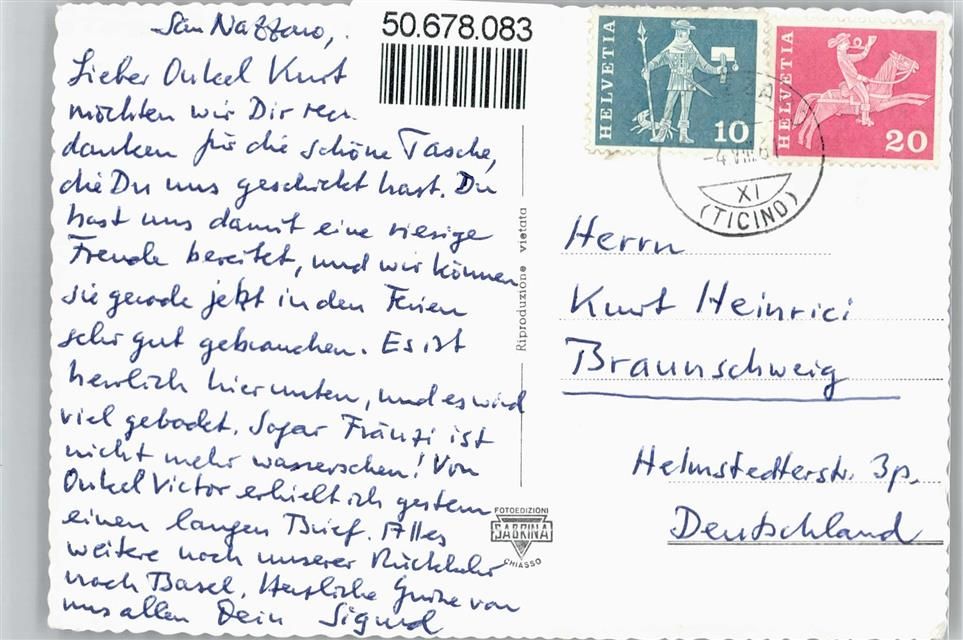 San Nazzaro,
50.678.083
Lieber Onkel Kurt
möchten wir Dir
danken für die schöne Tasche,
die Du uns geschickt hast. Du
hast uns damit eine riesige
Freude bereitet, und wir können
sie gerade jetzt in den Ferien
sehr gut gebrauchen. Es ist
herrlich hier unten, und es wird
viel gebadet. Sogar Fränzi ist
nicht mehr wasserscheu! Von
Onkel Victor erhielt ich gestern
einen langen Brief. Alles
weitere nach unserer Rückkehr
nach Basel. Herzliche Grüsse von
uns allen Dein Sigmund
Riproduzione vietata
FOTOEDIZIONI
SABRINA
CHIASSO
HELVETIA
10
HELVETIA
20
XI
(TICINO)
Herrn
Kurt Heinrici
Braunschweig
Helmstedterstr. 3p.
Deutschland